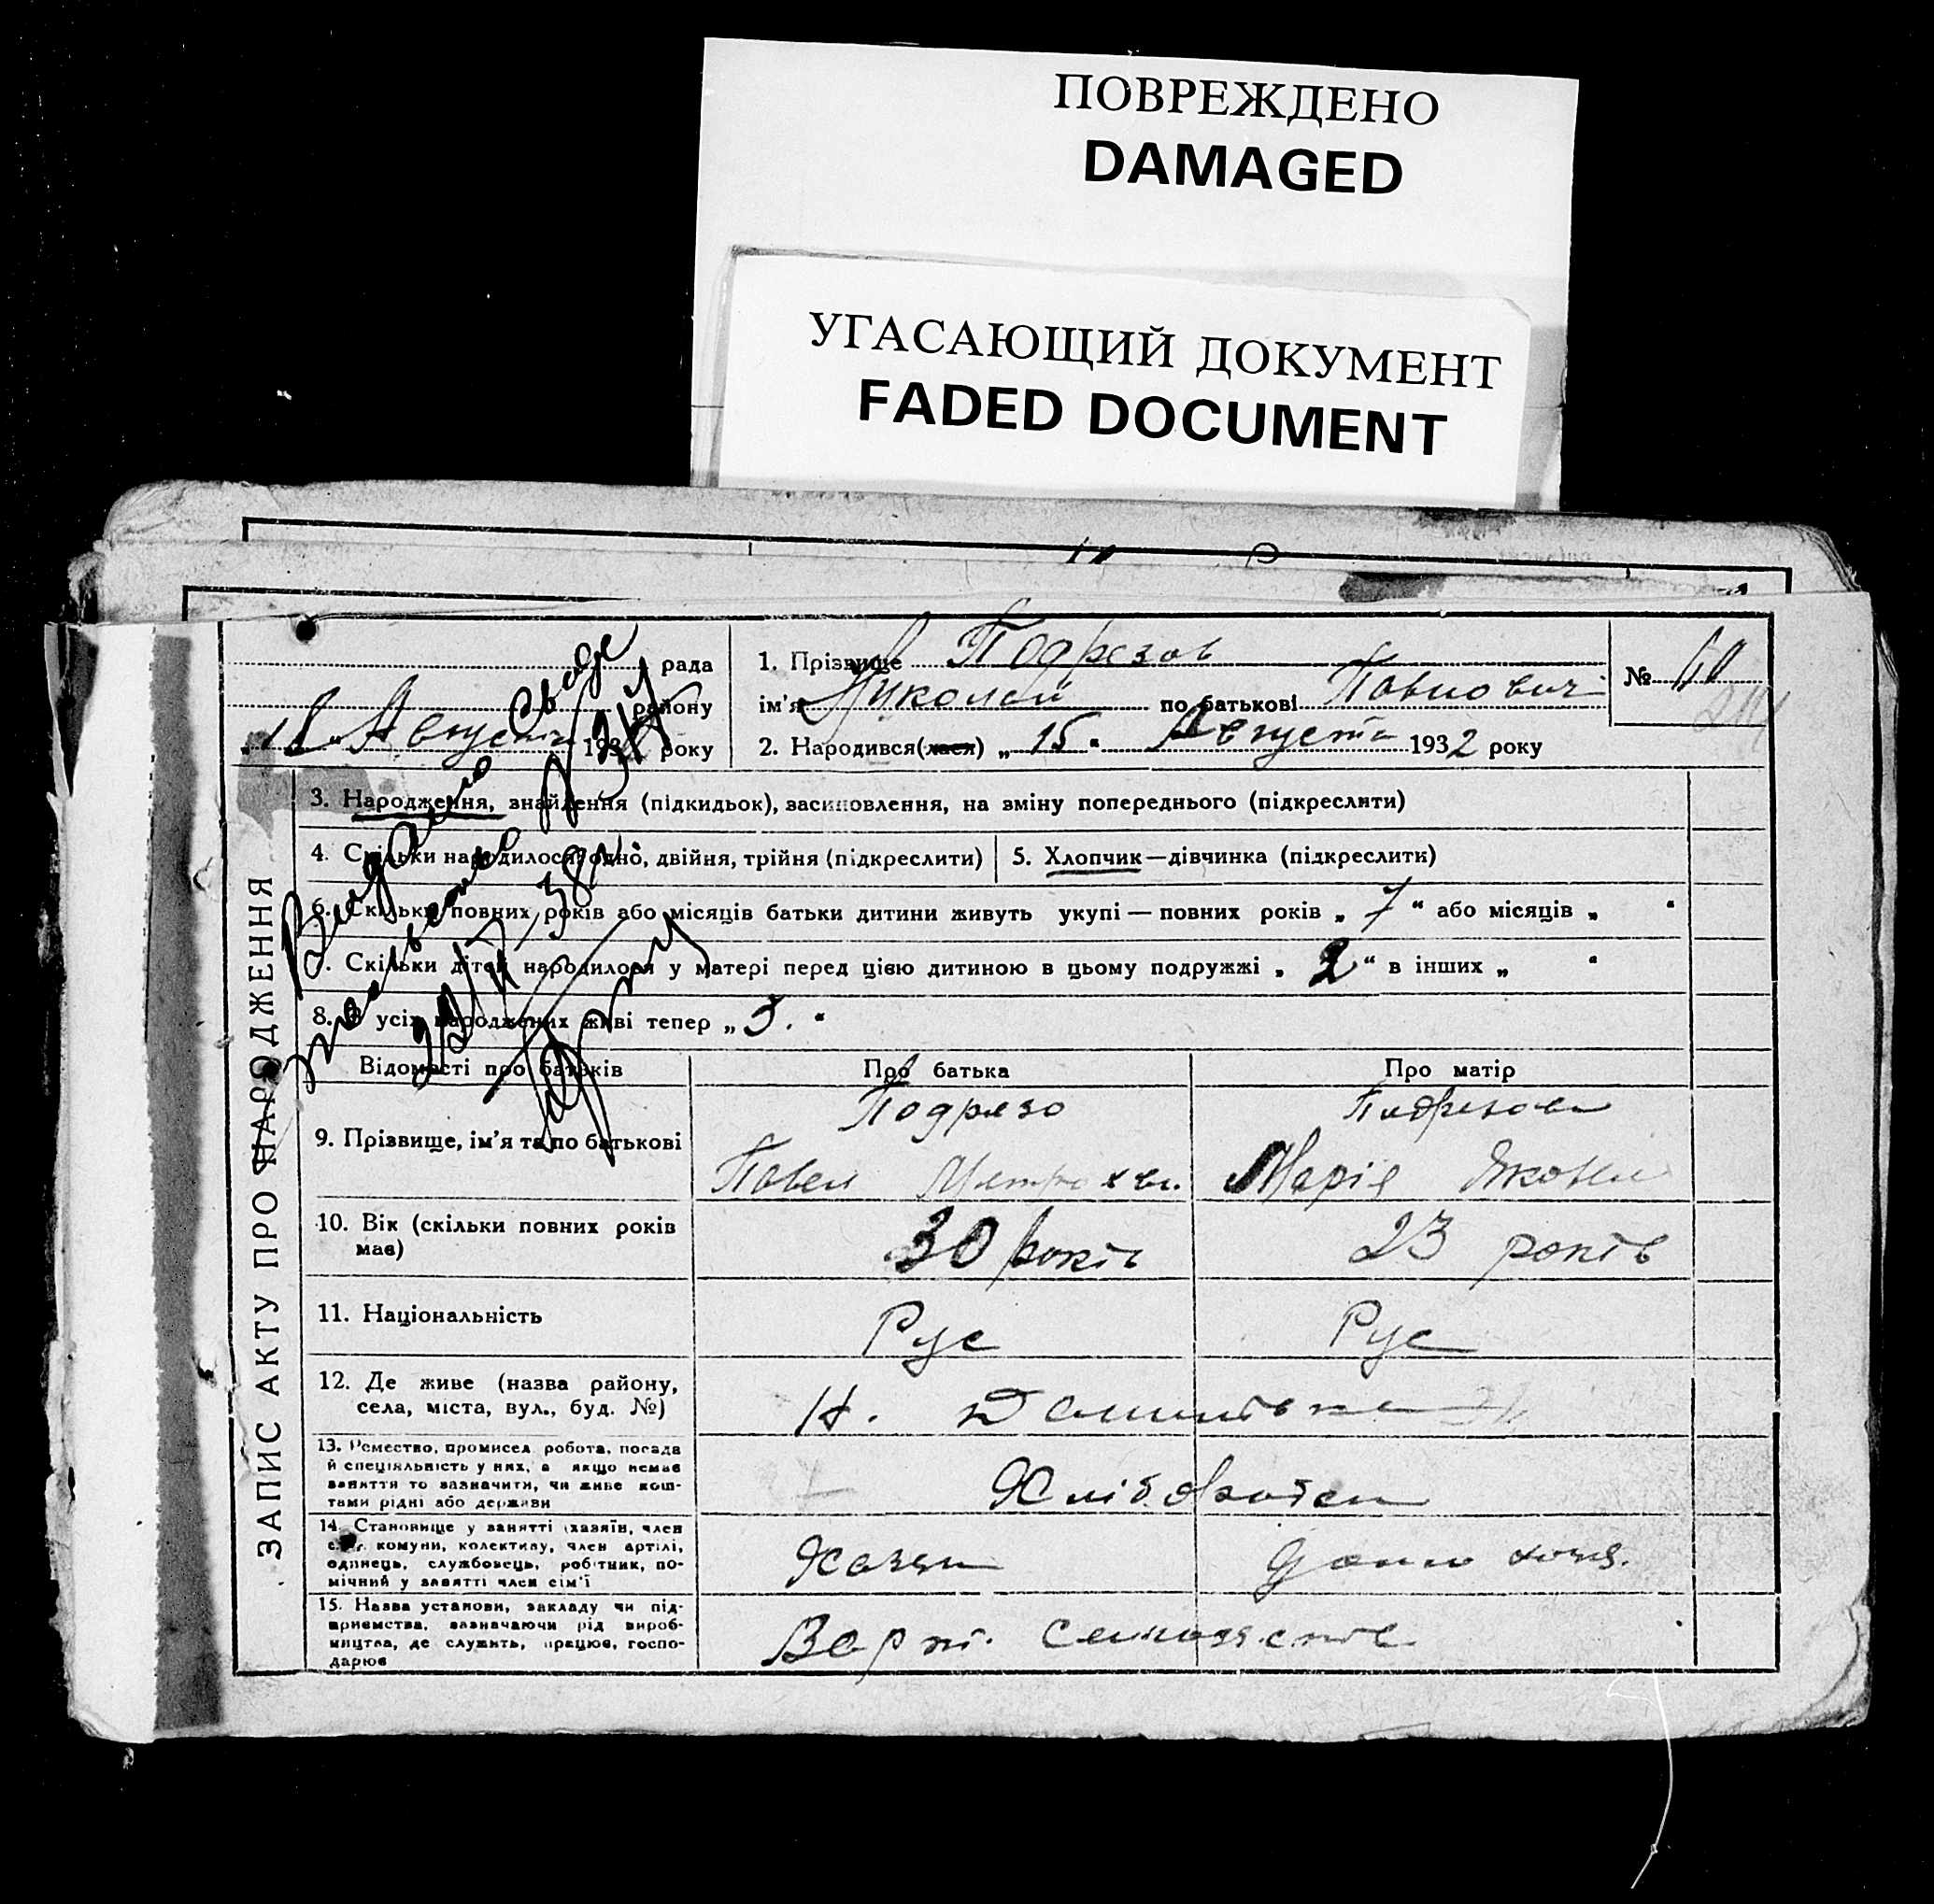 ПОВРЕЖДЕНО
DAMAGED
УГАСАЮЩИЙ ДОКУМЕНТ
FADED DOCUMENT
ЗАПИС АКТУ ПРО НАРОДЖЕННЯ
рада
району
Августа 193 року
1. Прізвище Подрезов
ім'я Николай по батькові Павлович
2. Народився(лася) „15" Августа 1932 року
№
3. Народження, знайдення (підкидьок), засиновлення, на зміну попереднього (підкреслити)
4. Скільки народилося: одно, двійня, трійня (підкреслити)
5. Хлопчик—дівчинка (підкреслити)
6. Скільки повних років або місяців батьки дитини живуть укупі — повних років „7" або місяців „ "
7. Скільки дітей народилося у матері перед цією дитиною в цьому подружжі „2" в інших „ "
8. З усіх народжених живі тепер „3."
Видано свиде
Відомості про батьків
Про батька
Про матір
9. Прізвище, ім'я та по батькові
Подрезо
Павел
Подрезова
Марія Яковл
10. Вік (скільки повних років має)
30 років
23 років
11. Національність
Рус
Рус
12. Де живе (назва району, села, міста, вул., буд. №)
Н.
13. Ремество, промисел, робота, посада й спеціяльність у них, а якщо немає заняття то зазначити, чи живе коштами рідні або держави
Хлібороб
14. Становище у занятті (хазяїн, член с.-г. комуни, колективу, член артілі, одинець, службовець, робітник, помічний у занятті член сім'ї
Хазяин
15. Назва установи, закладу чи підприємства, зазначаючи рід виробництва, де служить, працює, господарює